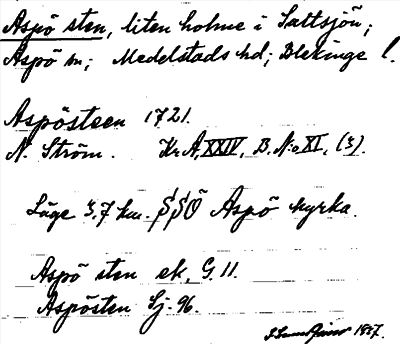 Aspö sten, liten holme i Saltsjön;
Aspö sn; Medelstads hd; Blekinge l.
Aspösteen 1721.
N. Ström. Kr. A, XXIV, B. N:o XI, (3).
Läge 3,7 km. SSÖ Aspö kyrka.
Aspö sten ek. G. 11.
Aspösten Sj. 96.
1937.